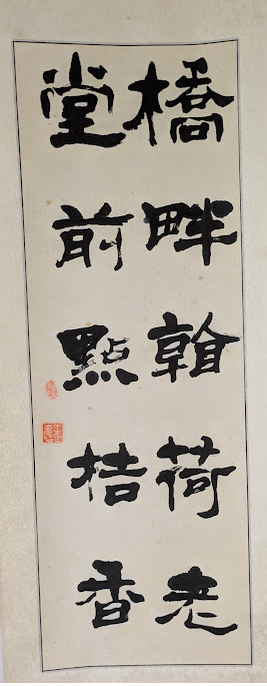 橋畔荷老
堂前點桔香